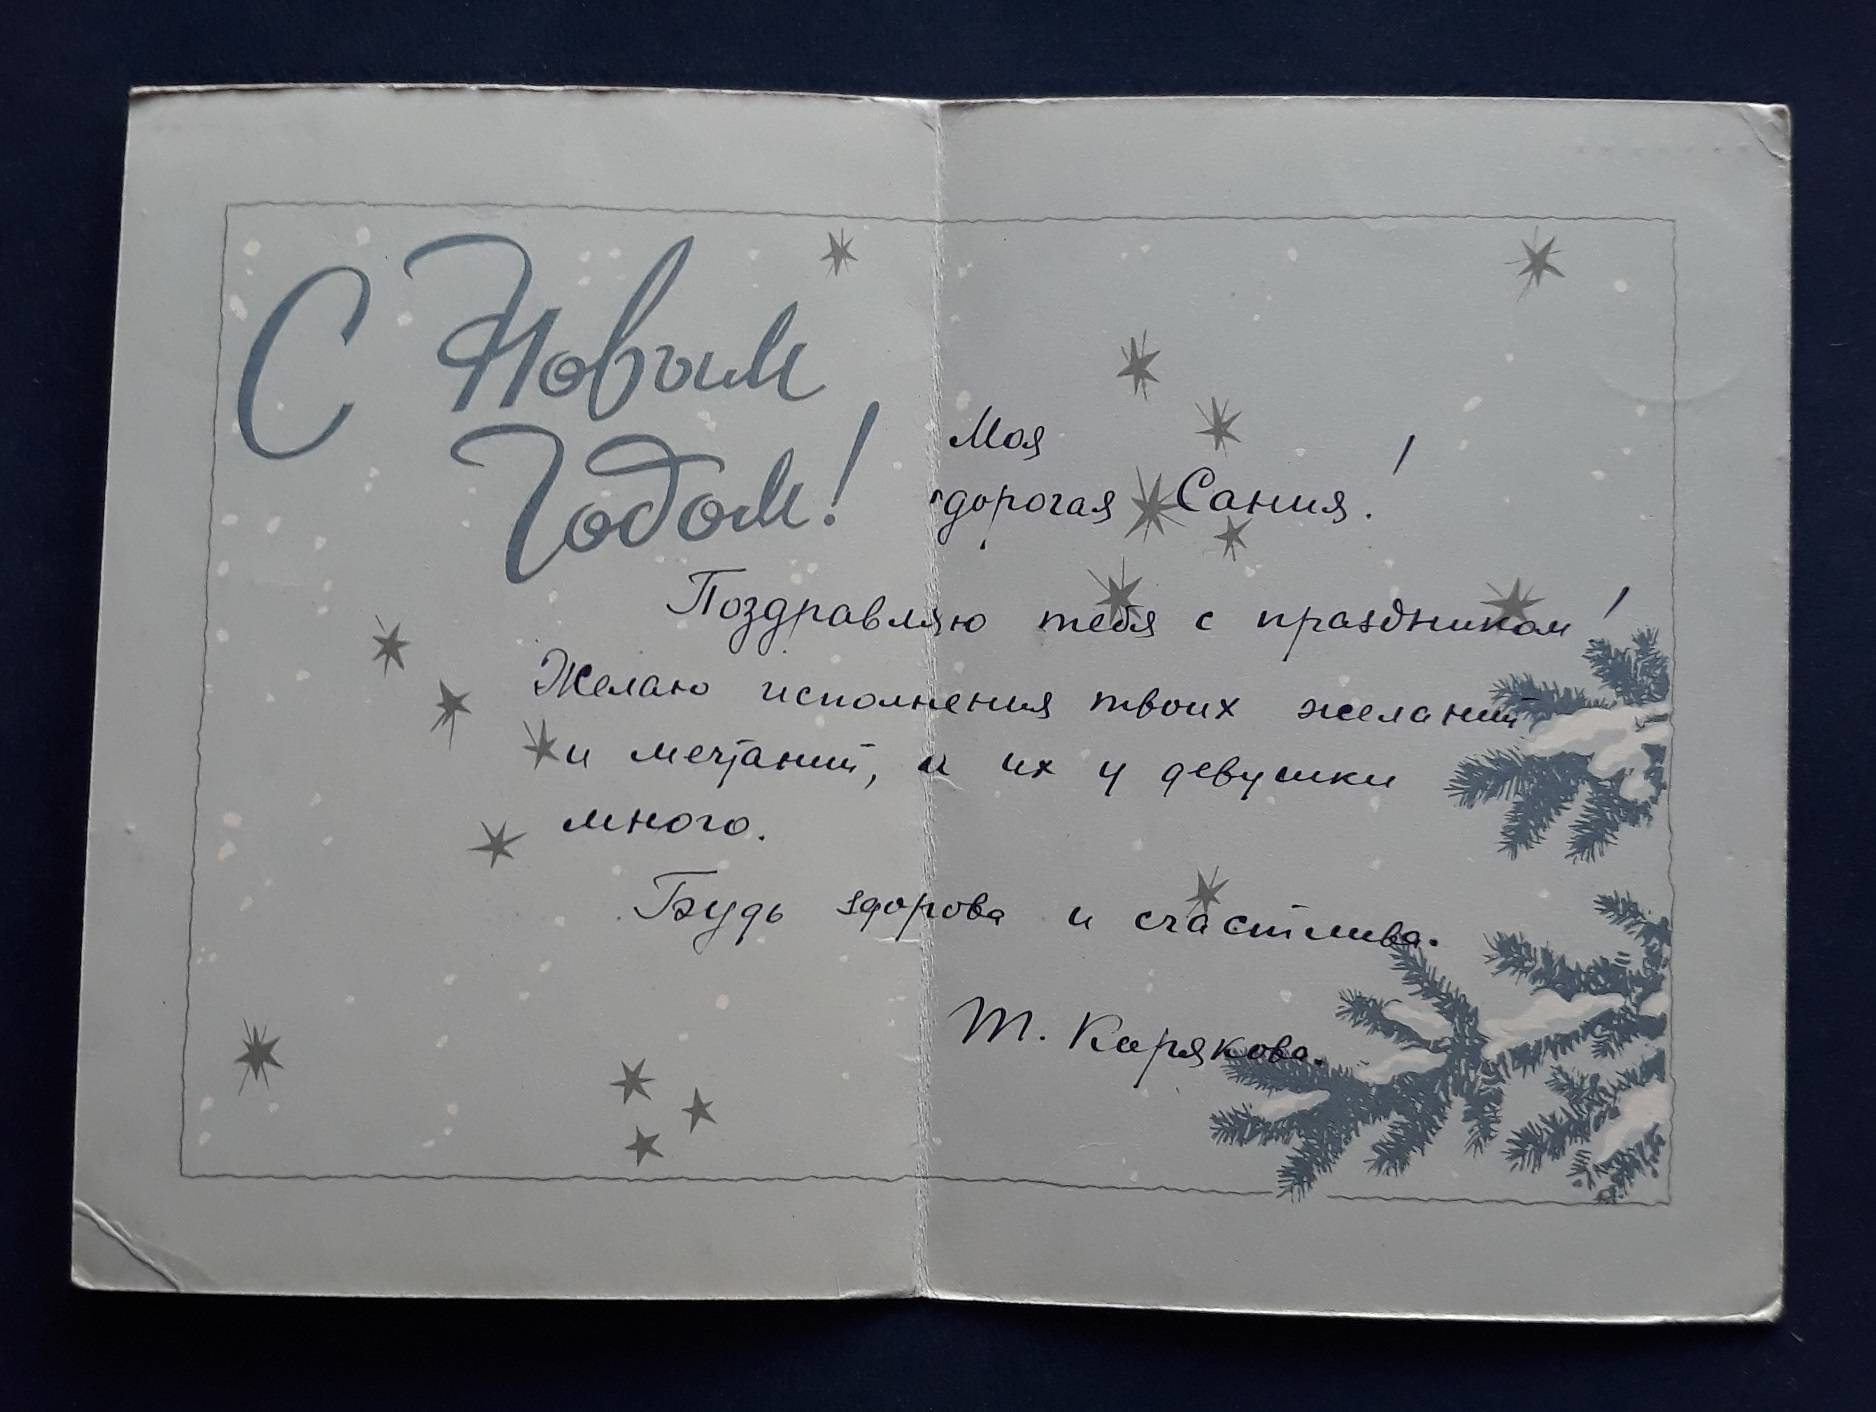 С Новым
Годом!
Моя
дорогая Сания!
Поздравляю тебя с праздником!
Желаю исполнения твоих желаний
и мечтаний, а их у девушки
много.
Будь здорова и счастлива.
Т. Карякова.